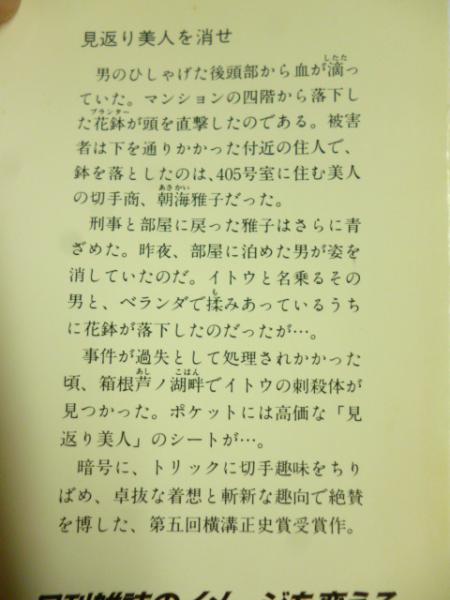 見返り美人を消せ
男のひしゃげた後頭部から血が滴っ
ていた。マンションの四階から落下し
た花鉢が頭を直撃したのである。被害
者は下を通りかかった付近の住人で、
鉢を落としたのは、405号室に住む美人
の切手商、朝海雅子だった。
刑事と部屋に戻った雅子はさらに青
ざめた。昨夜、部屋に泊めた男が姿を
消していたのだ。イトウと名乗るその
男と、ベランダで揉みあっているうち
に花鉢が落下したのだったが…。
事件が過失として処理されかかった
頃、箱根芦ノ湖畔でイトウの刺殺体が
見つかった。ポケットには高価な「見
返り美人」のシートが…。
暗号に、トリックに切手趣味をちり
ばめ、卓抜な着想と斬新な趣向で絶賛
を博した、第五回横溝正史賞受賞作。